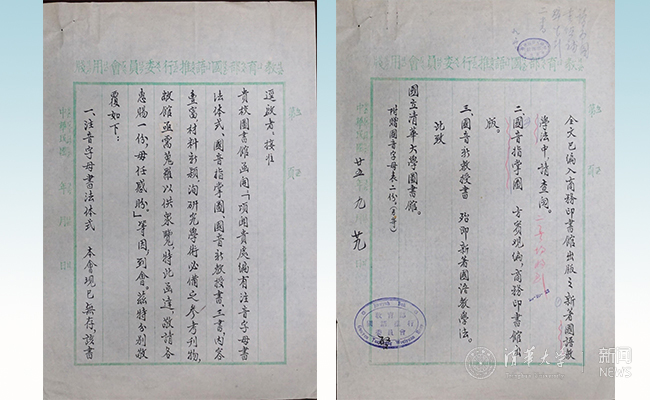 教育部國語推行委員會用箋
逕啟者：接准
貴校圖書館函開「頃聞貴處編有注音字母書
法體式、國音指掌圖、國音新教授書，三書內容
豐富，材料新穎，洵研究學術必備之參考刊物，
敝館亟需蒐羅以供眾覽，特此函達，敬請各
惠賜一份，毋任感盼。」等因，到會。茲特分別敬
覆如下：
一、注音字母書法體式 本會現已無存，該書
中華民國 年 月 日
教育部國語推行委員會用箋
全文已編入商務印書館出版之新著國語教
學法中，請查閱。
二、國音指掌圖 方賓觀編，商務印書館出
版。
三、國音新教授書 殆即新著國語教學法。
此致
國立清華大學圖書館。
附贈國音字母表二份，
中華民國 廿五 年 九 月 日
第 頁
教育部
國語推行
委員會
清華大學
新聞
NEWS